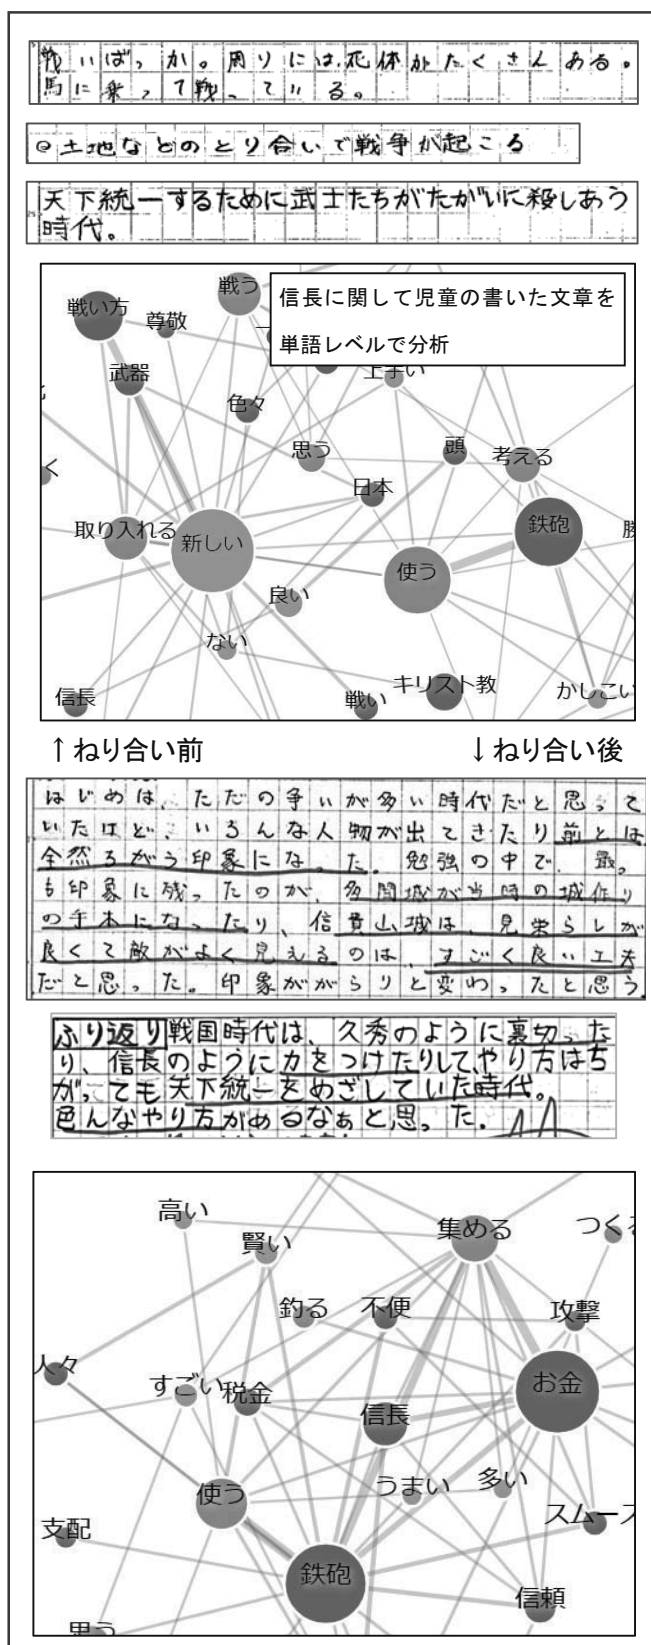 戦いばっか。周りには、死体がたくさんある。
馬に乗って戦っている。
◎土地などのとり合いで戦争が起こる
天下統一するために武士たちがたがいに殺しあう
時代。
信長に関して児童の書いた文章を
単語レベルで分析
戦い方
尊敬
戦う
武器
上手い
色々
思う
頭
考える
く
日本
取り入れる
新しい
鉄砲
勝
使う
良い
ない
信長
戦い
キリスト教
かしこい
↑ねり合い前
↓ねり合い後
はじめは、ただの争いが多い時代だと思って
いたけど、いろんな人物が出てきたり前とは
全然ちがう印象になった。勉強の中で、最
も印象に残ったのが、多聞城が当時の城作り
の手本になったり、信貴山城は、見栄らしが
良くて敵がよく見えるのは、すごく良い工夫
だと思った。印象ががらりと変わったと思う。
ふり返り戦国時代は、久秀のように裏切った
り、信長のように力をつけたりして、やり方はち
がっても天下統一をめざしていた時代。
色んなやり方があるなぁと思った。
高い
賢い
集める
つくる
釣る
不便
攻撃
人々
すごい
税金
信長
お金
使う
うまい
多い
スムーズ
支配
鉄砲
信頼
思う